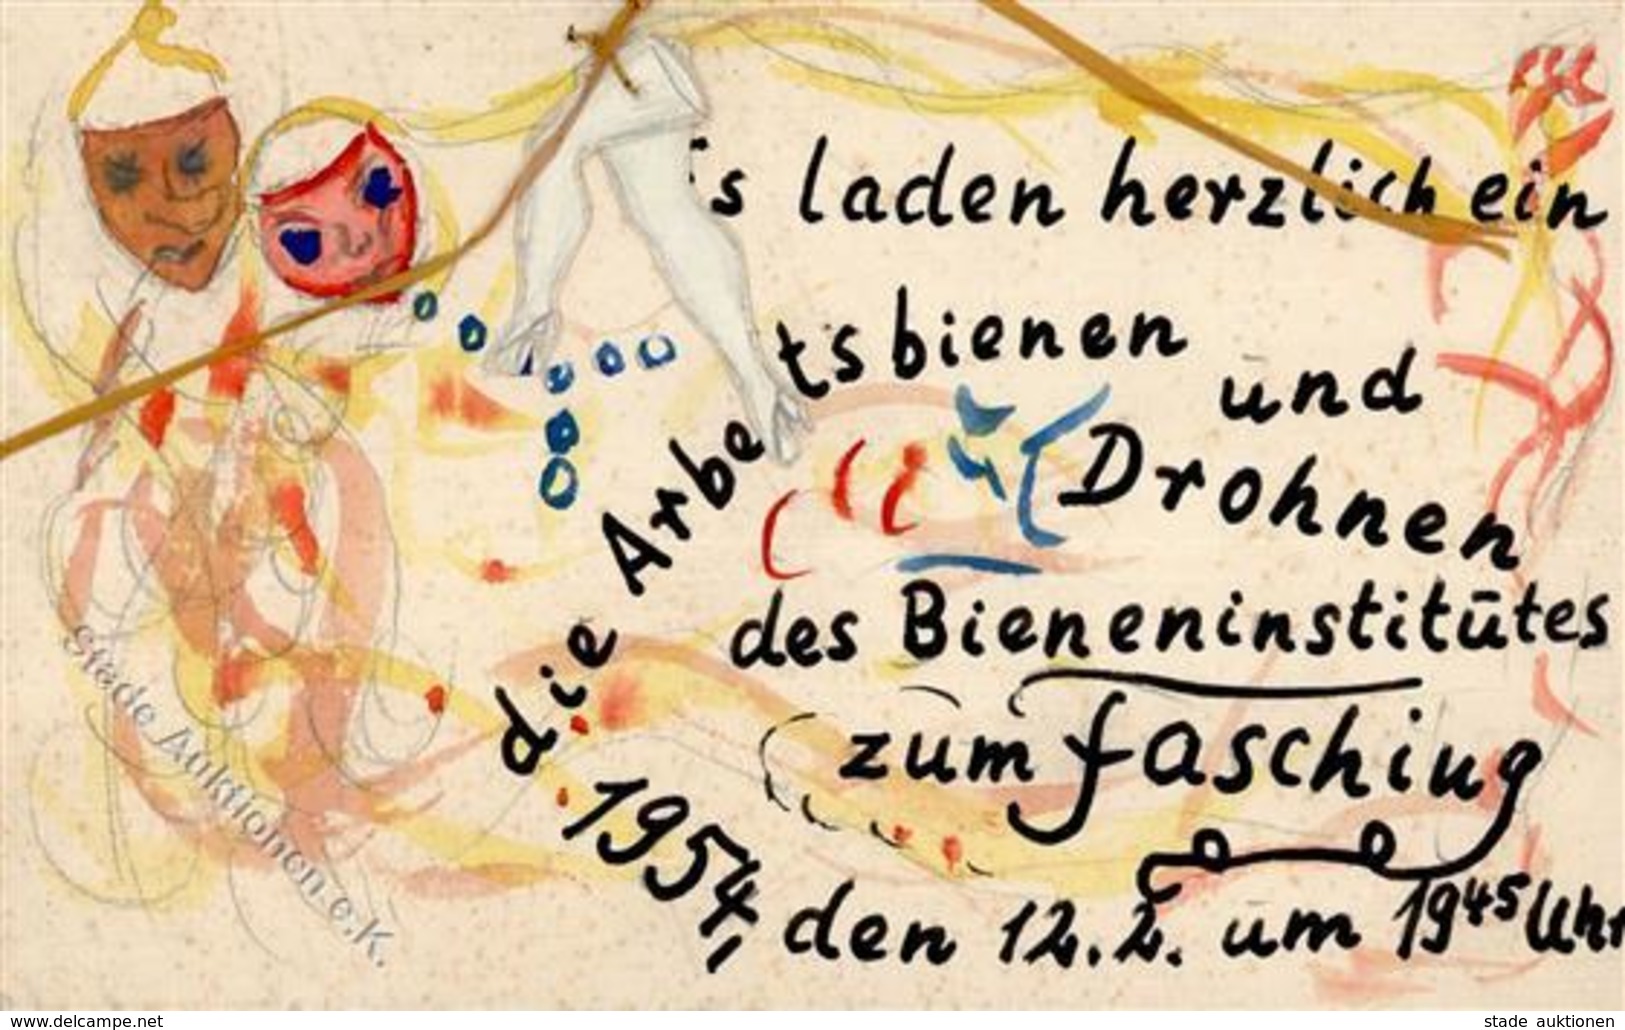 Es laden herzlich ein
die Arbeitsbienen und
Drohnen
des Bieneninstitūtes
zūm Fasching
1954, den 12.2. ūm 19⁴⁵ Uhr
Stade Auktionen e.K.
www.delcampe.net
stade auktionen